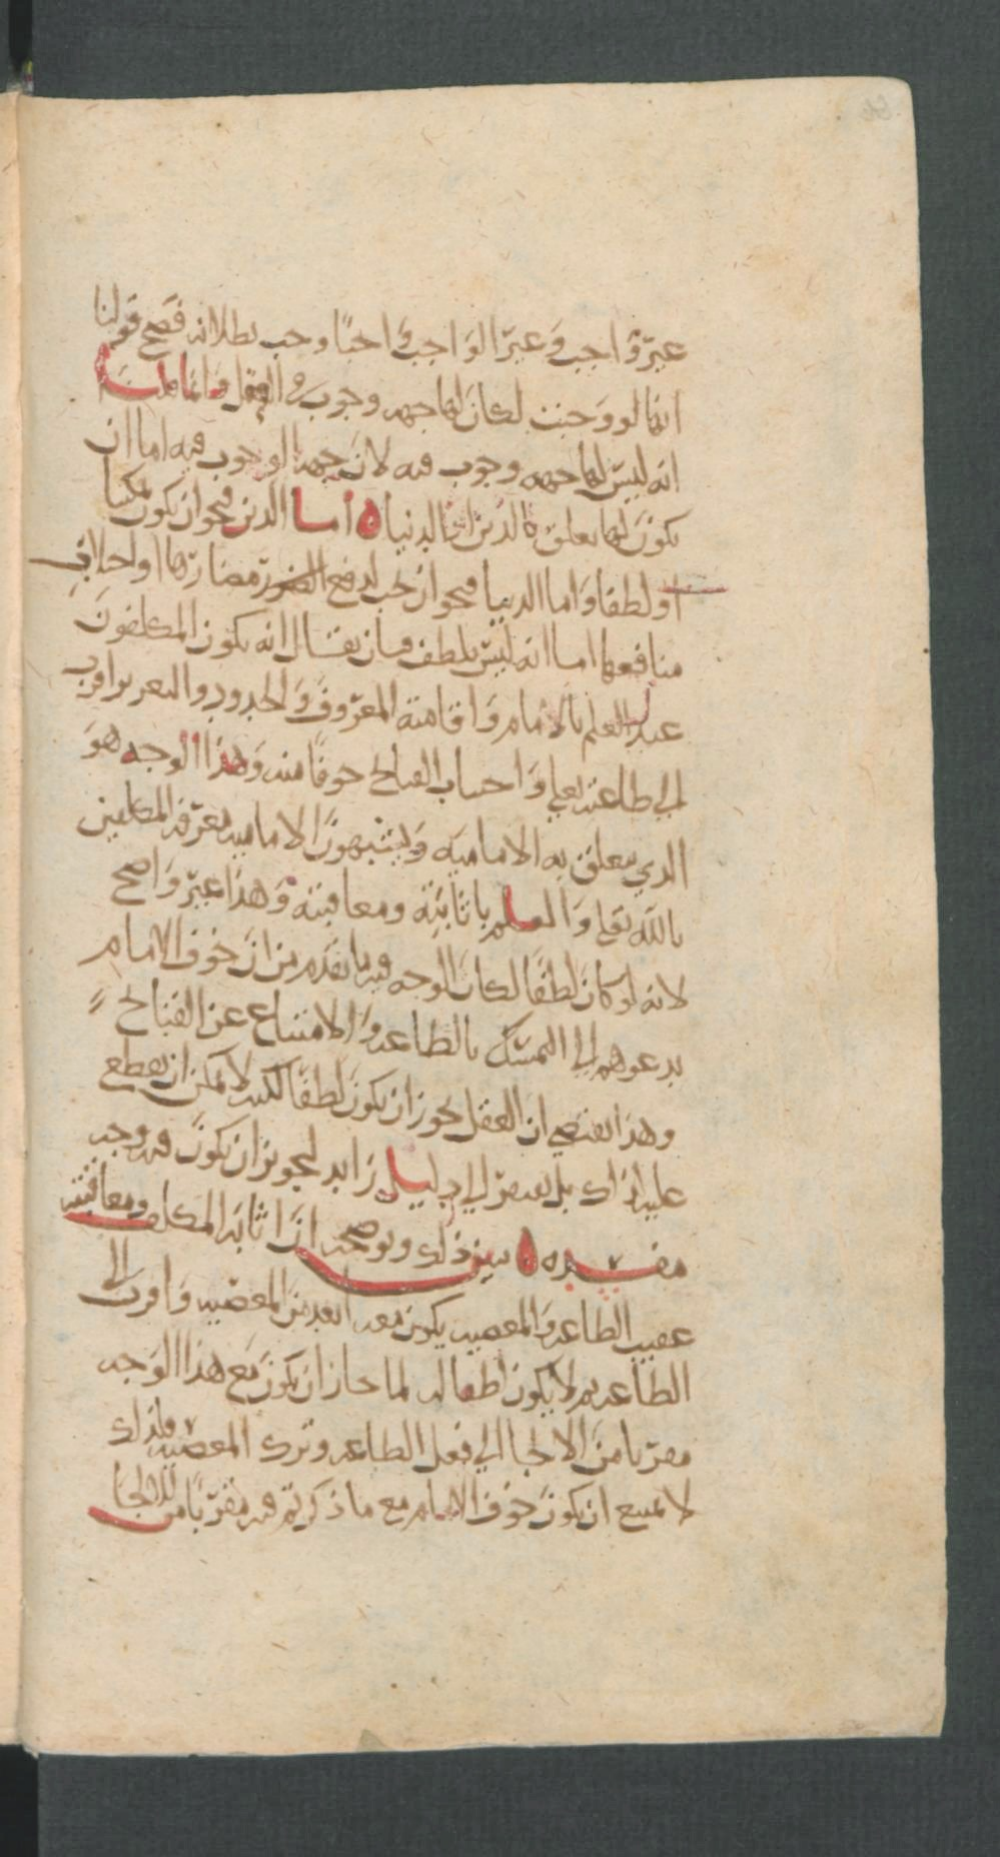 غير واجب وغير الواجب واجبًا وجب بطلانه فصح قولنا
انها لو وجبت لكان لها جهه وجوب في العقل وانما قلنا
انه ليس لها جهه وجوب فيه لان جهه الوجوب فيه اما ان
تكون لها تعلق بالدين او بالدنيا ه أما الدين فنحو ان تكون تمكينا
او لطفا واما الدنيا فنحو ان تجب لدفع مضارها او اجلاب
منافعها اما انه ليس بلطف فبان يقال انه يكون المكلفون
عند العلم بالامام واقامته المعروف والحدود والتعزير اقرب
الي طاعته تعلي واجتناب القبائح خوفا منه وهذا الوجه هو
الذي يتعلق به الاماميه ويشبهون الاماميه بمعرفه المكلفين
بالله تعلي والعلم باثابته ومعاقبته وهذا غير واضح
لانه لو كان لطفا لكان الوجه فيه ما تقدم من ان خوف الامام
يدعوهم الي التمسك بالطاعه والامتناع عن القبائح
وهذا يقتضي ان العقل يجوز ان يكون لطفا لكنه لا يمكن ان يقطع
علي ذلك بل يفتقر الي دليل زايد لتجويز ان يكون فيه وجه
مفسده ه يبين ذلك ويوضحه ان اثابه المكلف ومعاقبته
عقيب الطاعه والمعصيه يكون معه ابعد من المعصيه واقرب الى
الطاعه ثم لا يكون لطفا له لما جاز ان يكون مع هذا الوجه
مقربا من الالجا الي فعل الطاعه وترك المعصيه فلذلك
لا يمتنع ان يكون خوف الامام مع ما ذكرتم فيه مقربا من الالجا